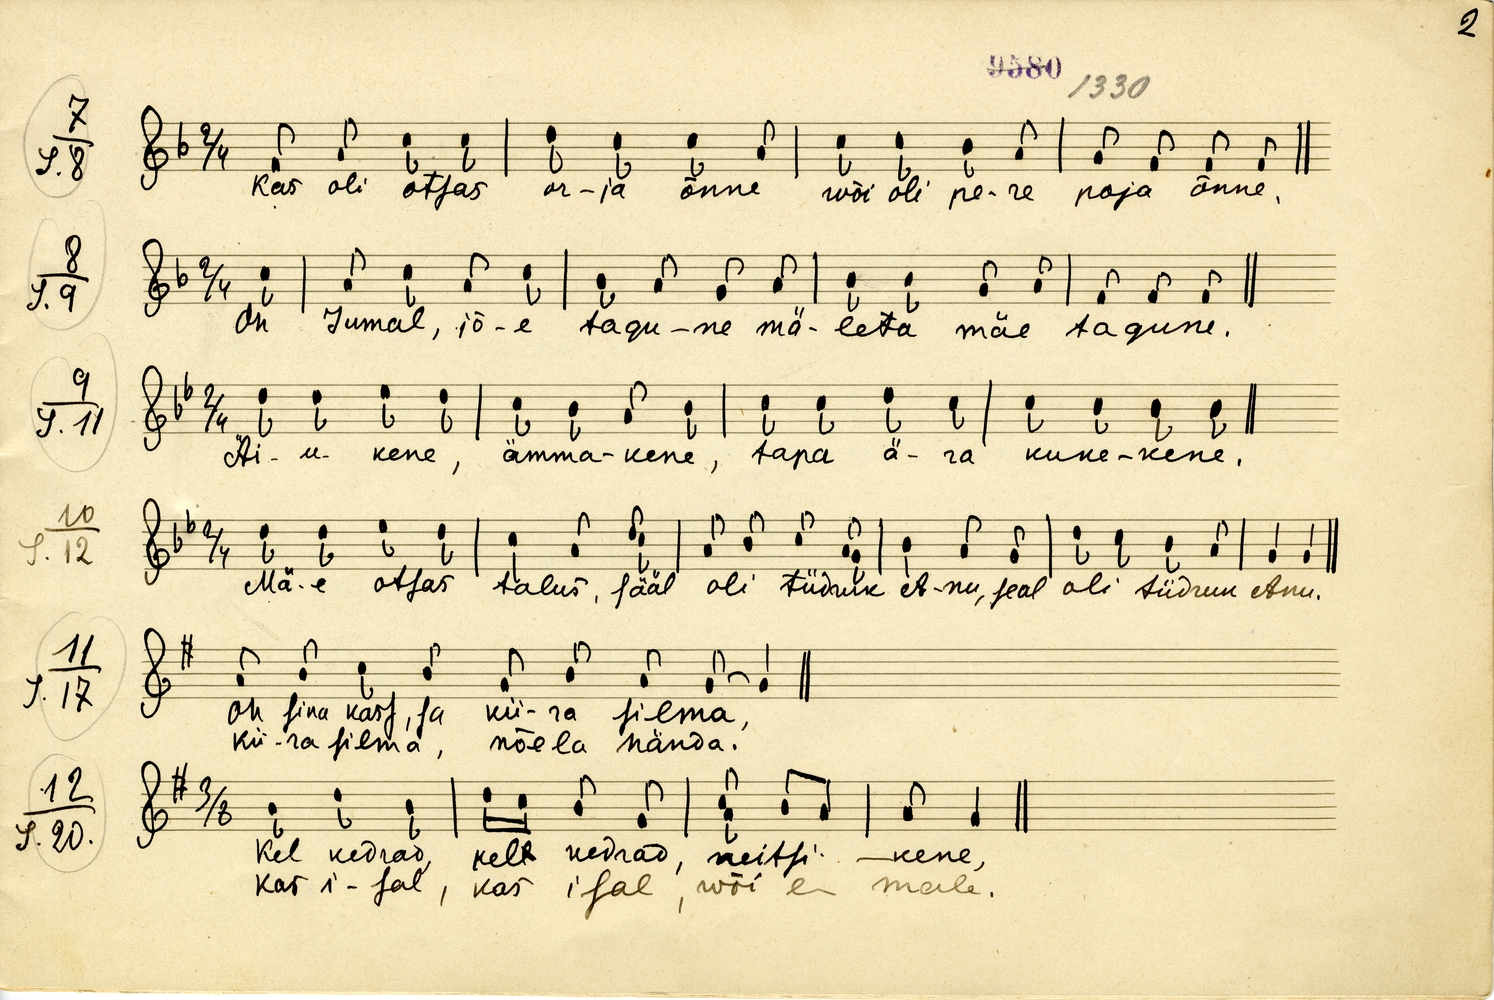 2
9580 1330
7
S. 8
2/4
Kas oli otsas or-ja õnne wõi oli pe-re poja õnne.
8
S. 9
2/4
Oh Jumal, jõ-e tagu-ne mä-leta mäe tagune.
9
S. 11
2/4
Äi-u-kene, ämma-kene, tapa ä-ra kuke-kene.
10
S. 12
2/4
Mä-e otsas talus, sääl oli tüdruk A-nu, seal oli tüdruk Anu.
11
S. 17
Oh sina kass, sa kü-ra silma,
kü-ra silma, nõela hända.
12
S. 20.
3/8
Kel kedrad, kelt kedrad, neitsi-kene,
kas i-sal, kas isal, wõi en male.